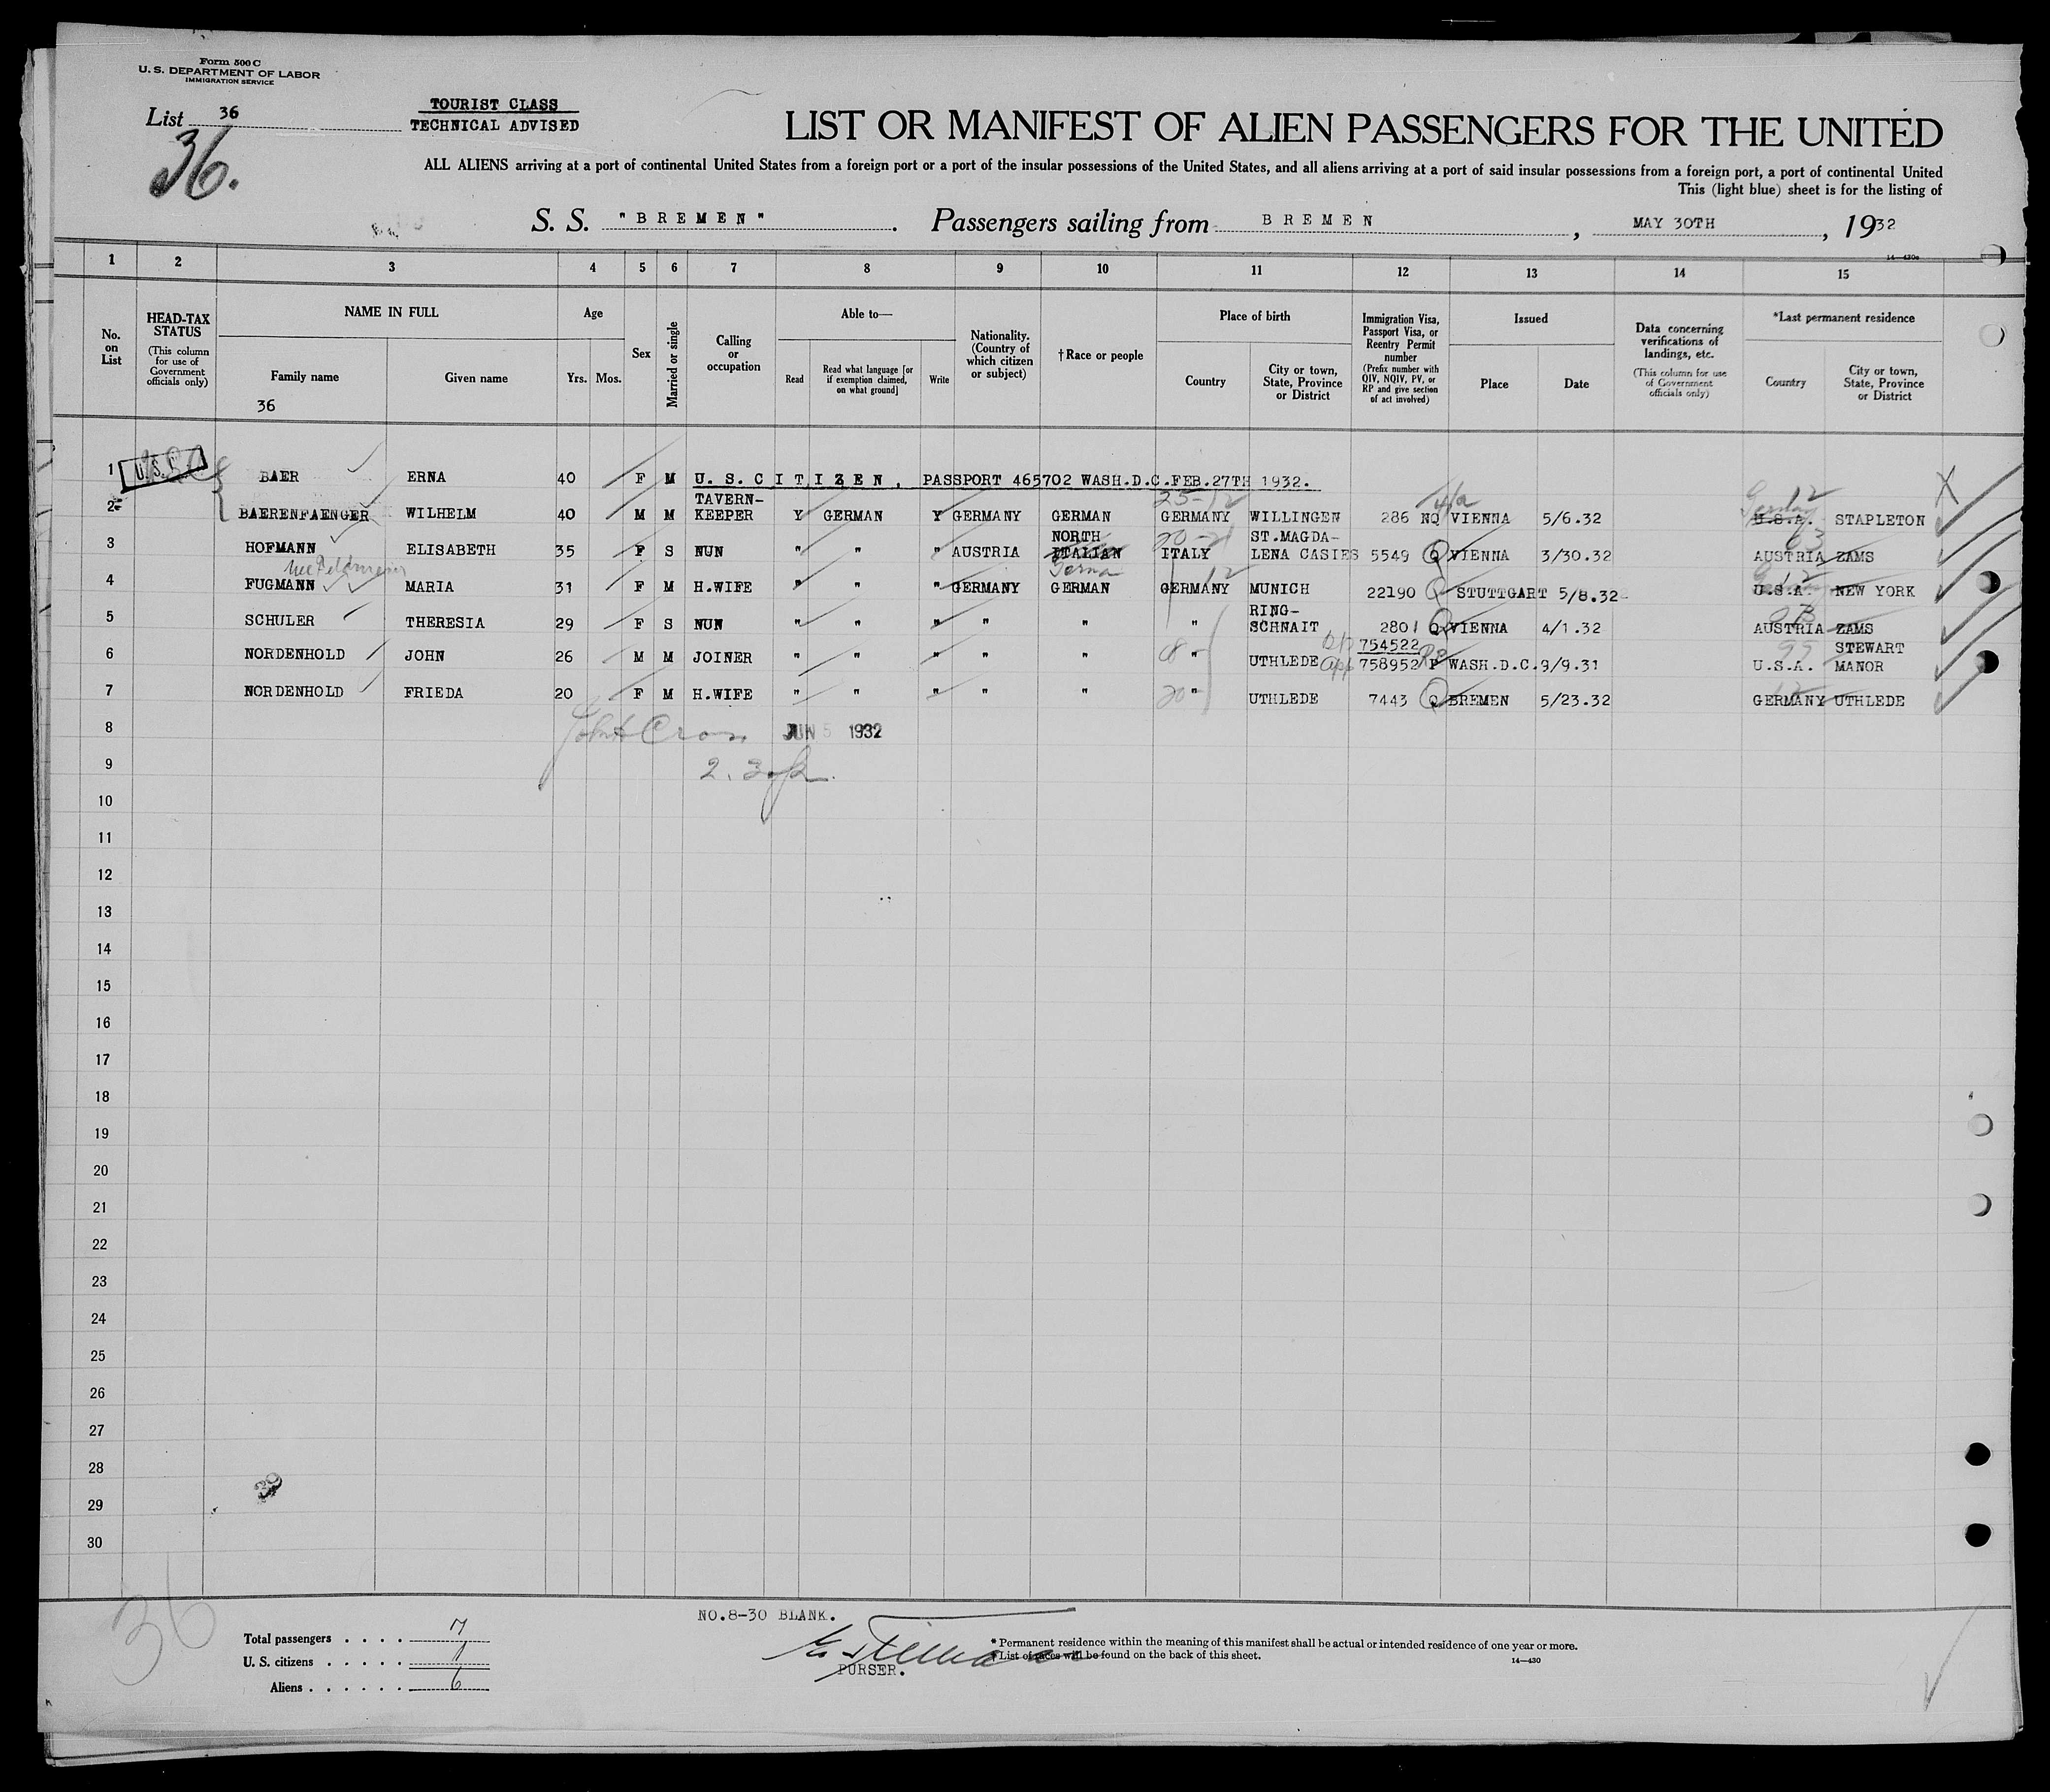 Form 500 C
U. S. DEPARTMENT OF LABOR
IMMIGRATION SERVICE
List 36
36.
TOURIST CLASS
TECHNICAL ADVISED
LIST OR MANIFEST OF ALIEN PASSENGERS FOR THE UNITED
ALL ALIENS arriving at a port of continental United States from a foreign port or a port of the insular possessions of the United States, and all aliens arriving at a port of said insular possessions from a foreign port, a port of continental United
This (light blue) sheet is for the listing of
S. S. "BREMEN". Passengers sailing from BREMEN, MAY 30TH, 1932
1 2 3 4 5 6 7 8 9 10 11 12 13 14 15
No. on List
HEAD-TAX STATUS
(This column for use of Government officials only)
NAME IN FULL
Family name
36
Given name
Age
Yrs. Mos.
Sex
Married or single
Calling or occupation
Able to—
Read
Read what language [or if exemption claimed, on what ground]
Write
Nationality. (Country of which citizen or subject)
†Race or people
Place of birth
Country
City or town, State, Province or District
Immigration Visa, Passport Visa, or Reentry Permit number
(Prefix number with QIV, NQIV, PV, or RP and give section of act involved)
Issued
Place
Date
Data concerning verifications of landings, etc.
(This column for use of Government officials only)
*Last permanent residence
Country
City or town, State, Province or District
14—430a
1 BAER ERNA 40 F M U.S.CITIZEN, PASSPORT 465702 WASH.D.C.FEB.27TH 1932.
2 BAERENFAENGER WILHELM 40 M M TAVERN-KEEPER Y GERMAN Y GERMANY GERMAN GERMANY WILLINGEN 286 NQ VIENNA 5/6.32 U.S.A. STAPLETON
3 HOFMANN ELISABETH 35 F S NUN " " " AUSTRIA NORTH ITALIAN ITALY ST.MAGDA-LENA CASIES 5549 Q VIENNA 3/30.32 AUSTRIA ZAMS
4 FUGMANN MARIA 31 F M H.WIFE " " " GERMANY GERMAN GERMANY MUNICH 22190 Q STUTTGART 5/8.32 U.S.A. NEW YORK
5 SCHULER THERESIA 29 F S NUN " " " " " " RING-SCHNAIT 2801 Q VIENNA 4/1.32 AUSTRIA ZAMS
6 NORDENHOLD JOHN 26 M M JOINER " " " " " " UTHLEDE 754522 758952 P WASH.D.C. 9/9.31 U.S.A. STEWART MANOR
7 NORDENHOLD FRIEDA 20 F M H.WIFE " " " " " " UTHLEDE 7443 Q BREMEN 5/23.32 GERMANY UTHLEDE
8 JUN 5 1932
9
10
11
12
13
14
15
16
17
18
19
20
21
22
23
24
25
26
27
28
29
30
36
NO.8-30 BLANK.
Total passengers . . . . 7
U. S. citizens . . . . . 1
Aliens . . . . . . 6
PURSER.
* Permanent residence within the meaning of this manifest shall be actual or intended residence of one year or more.
† List of races will be found on the back of this sheet.
14—430